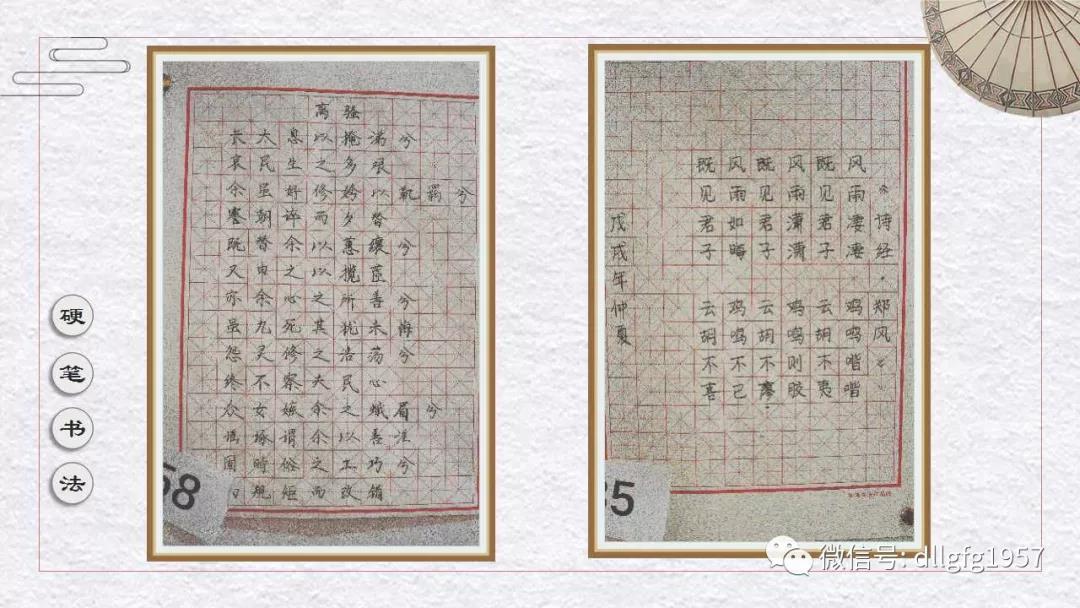 硬
笔
书
法
离骚
长太息以掩涕兮
哀民生之多艰
余虽好修姱以鞿羁兮
謇朝谇而夕替
既替余以蕙纕兮
又申之以揽茝
亦余心之所善兮
虽九死其犹未悔
怨灵修之浩荡兮
终不察夫民心
众女嫉余之蛾眉兮
谣诼谓余以善淫
固時俗之工巧兮
偭规矩而改错
58
《诗经·郑风》
风雨凄凄 鸡鸣喈喈
既见君子 云胡不夷
风雨潇潇 鸡鸣则胶
既见君子 云胡不瘳
风雨如晦 鸡鸣不已
既见君子 云胡不喜
戊戌年仲夏
35
微信号: dllgfg1957